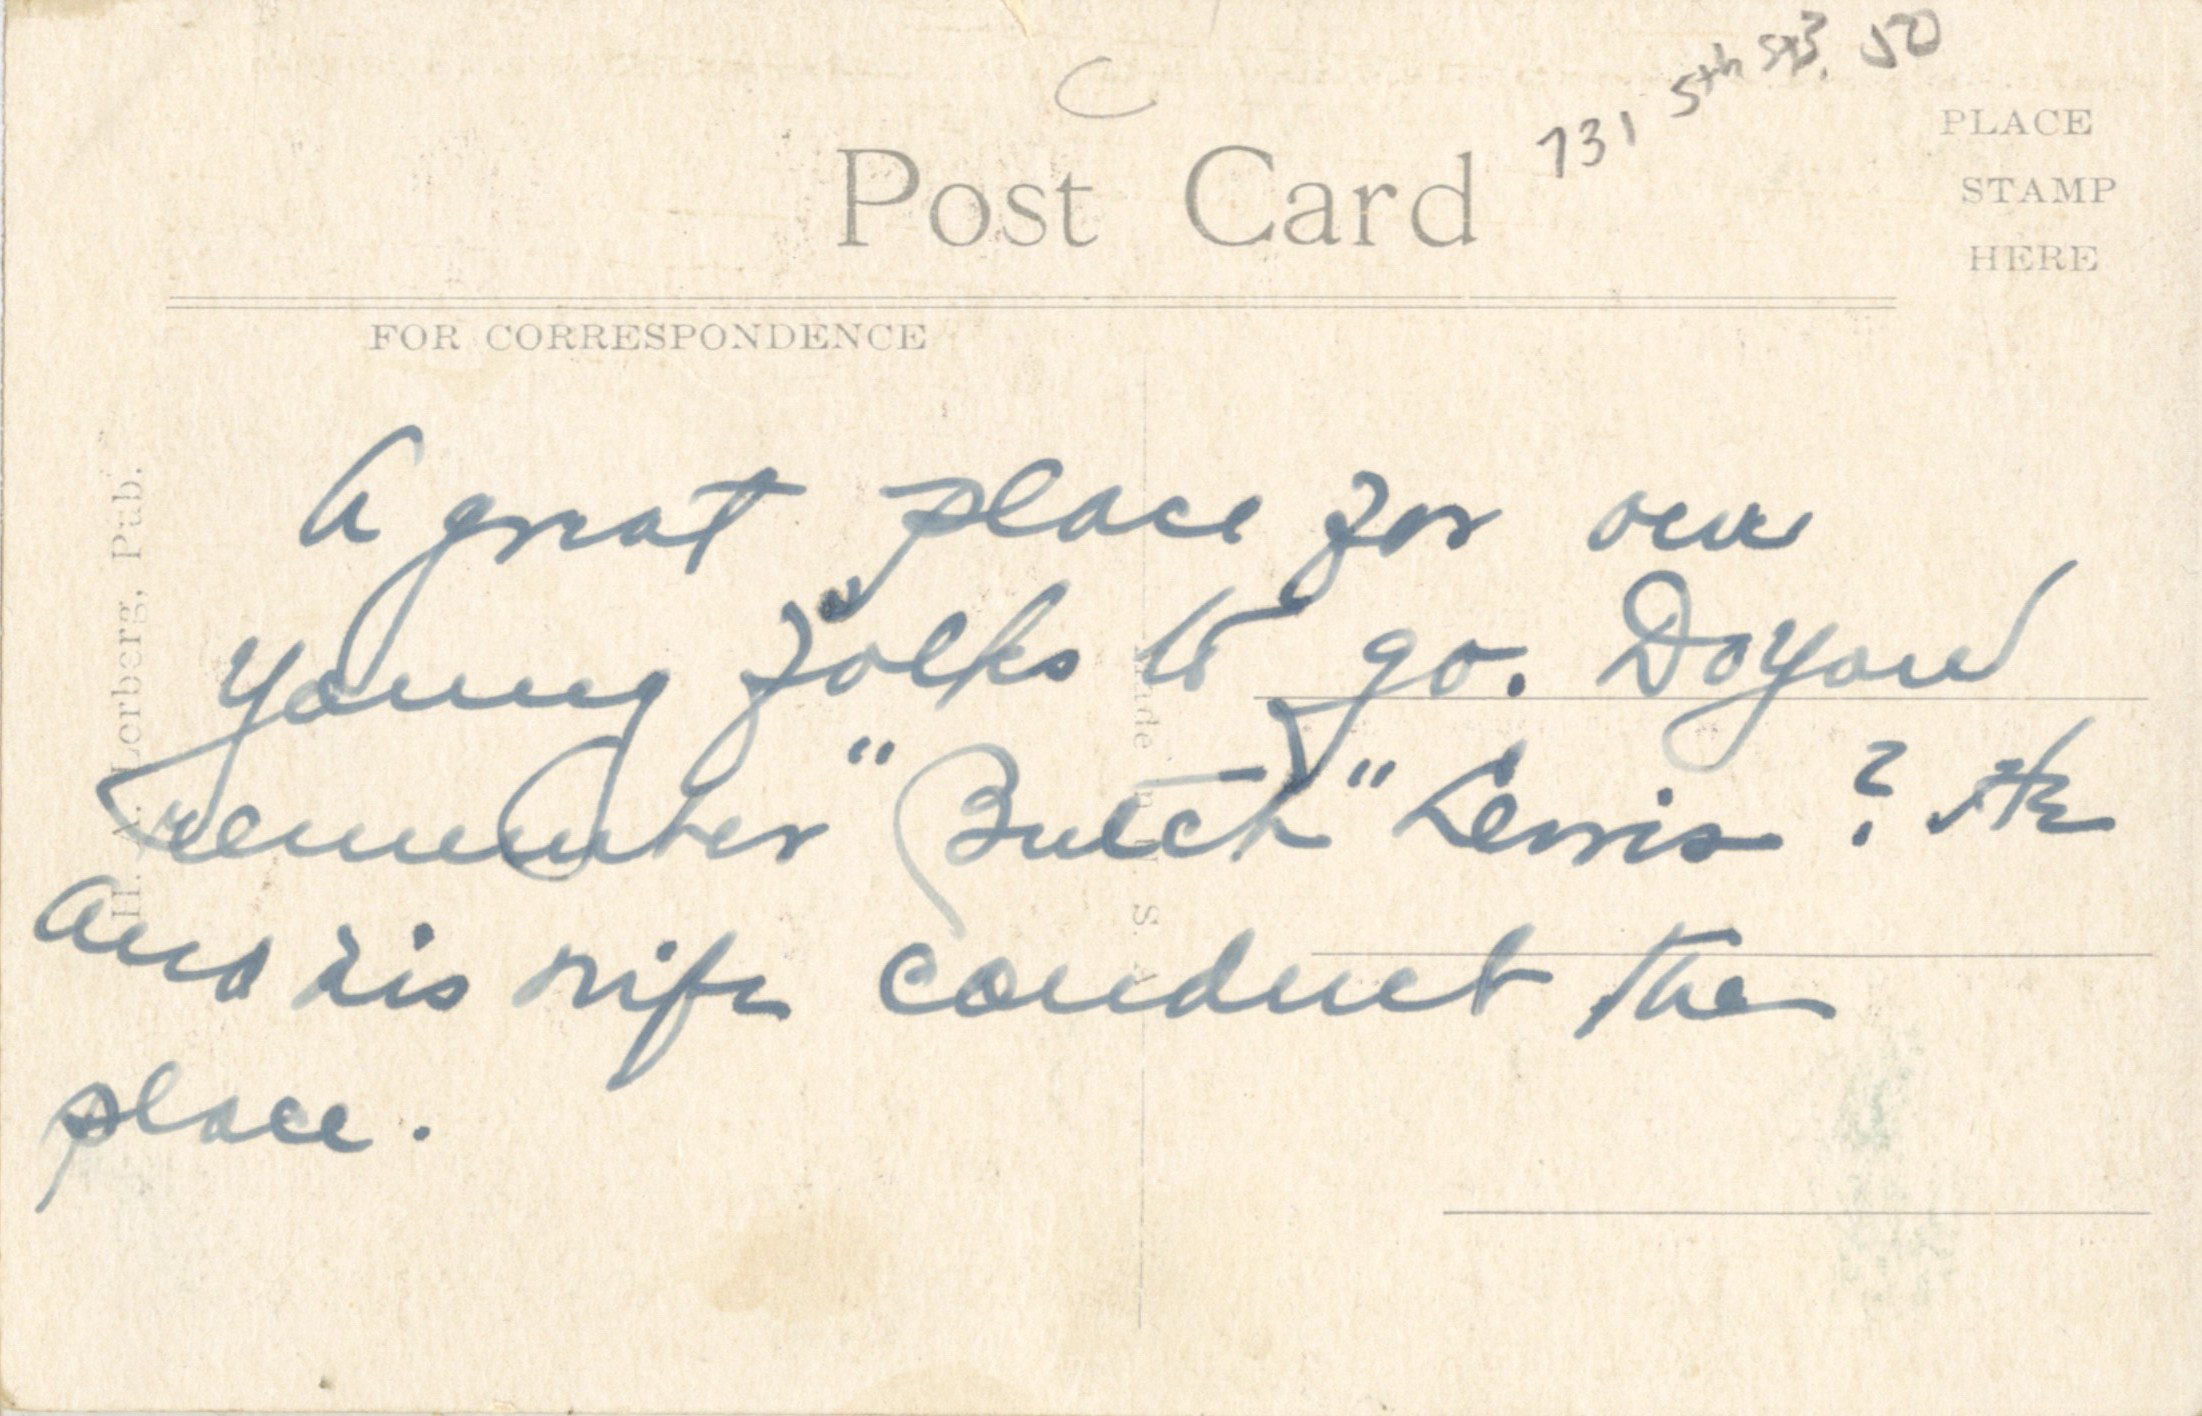 C
731 5th St 3.50
Post Card
PLACE
STAMP
HERE
FOR CORRESPONDENCE
A great place for our
young folks to go. Do you
remember "Butch" Lewis? He
and his wife conduct the
place.
Lorberg, Pub.
Made in U. S. A.